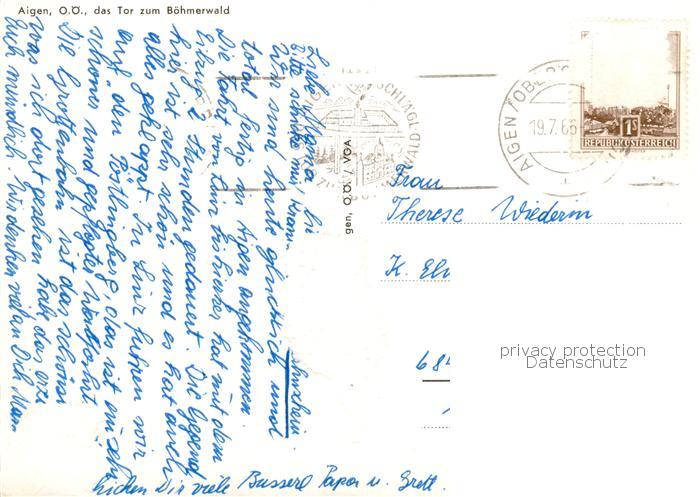 Aigen, O.Ö., das Tor zum Böhmerwald
Liebe Mama
Bitte schicke mir
Wir sind heute glücklich und
total fertig in Aigen angekommen.
Die Fahrt von Linz hat mit dem
Eilzug 2 Stunden gedauert. Die Gegend
hier ist sehr schön und es hat auch
alles geklappt. In Linz fuhren wir
auf den Pöstlingberg, das ist ein sehr
schöner und gepflegter Wallfahrt
Die Grottenbahn ist das schönste
was ich dort gesehen habe das erz
Dich mündlich. Für denken viel an Dich Mam
hicken Dir viele Busserl Papa u. Gretl.
gen, O.Ö. / VGA
AIGEN
SCHLÄGL
AIGEN (OBERÖ
19.7.66
1S
REPUBLIK ÖSTERREICH
Frau
Therese Wiederin
K. El
68
privacy protection
Datenschutz